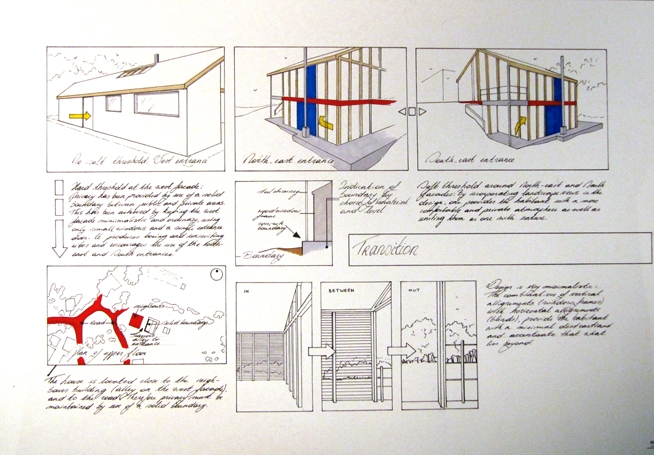 threshold West entrance
North-east entrance
South-east entrance
Hard threshold at the west facade:
Privacy has been provided by use of a solid
boundary between public and private areas.
This has been achieved by keeping the west
facade minimalistic and ordinary, using
only small windows and a single
door. It produces boring and uninviting
views and encourages the use of the north-
east and South entrances.
Indication of
boundary by
choice of material
and level
boundary
Boundary
Soft threshold around North-east and South
facades: by incorporating landscape views in the
design, provides the habitant with a more
comfortable and private atmosphere as well as
uniting them as one with nature.
Transition
neighbour
solid boundary
plan of upper floor
The house is located close to the neigh-
bours building (alley on the west facade),
and to the road, therefore privacy must be
maintained by use of a solid boundary.
IN
BETWEEN
OUT
Design is very minimalistic.
The combination of vertical
alignments (windows frames)
with horizontal alignments
(blinds), provide the habitant
with a minimal
and accentuate that what
lies beyond.